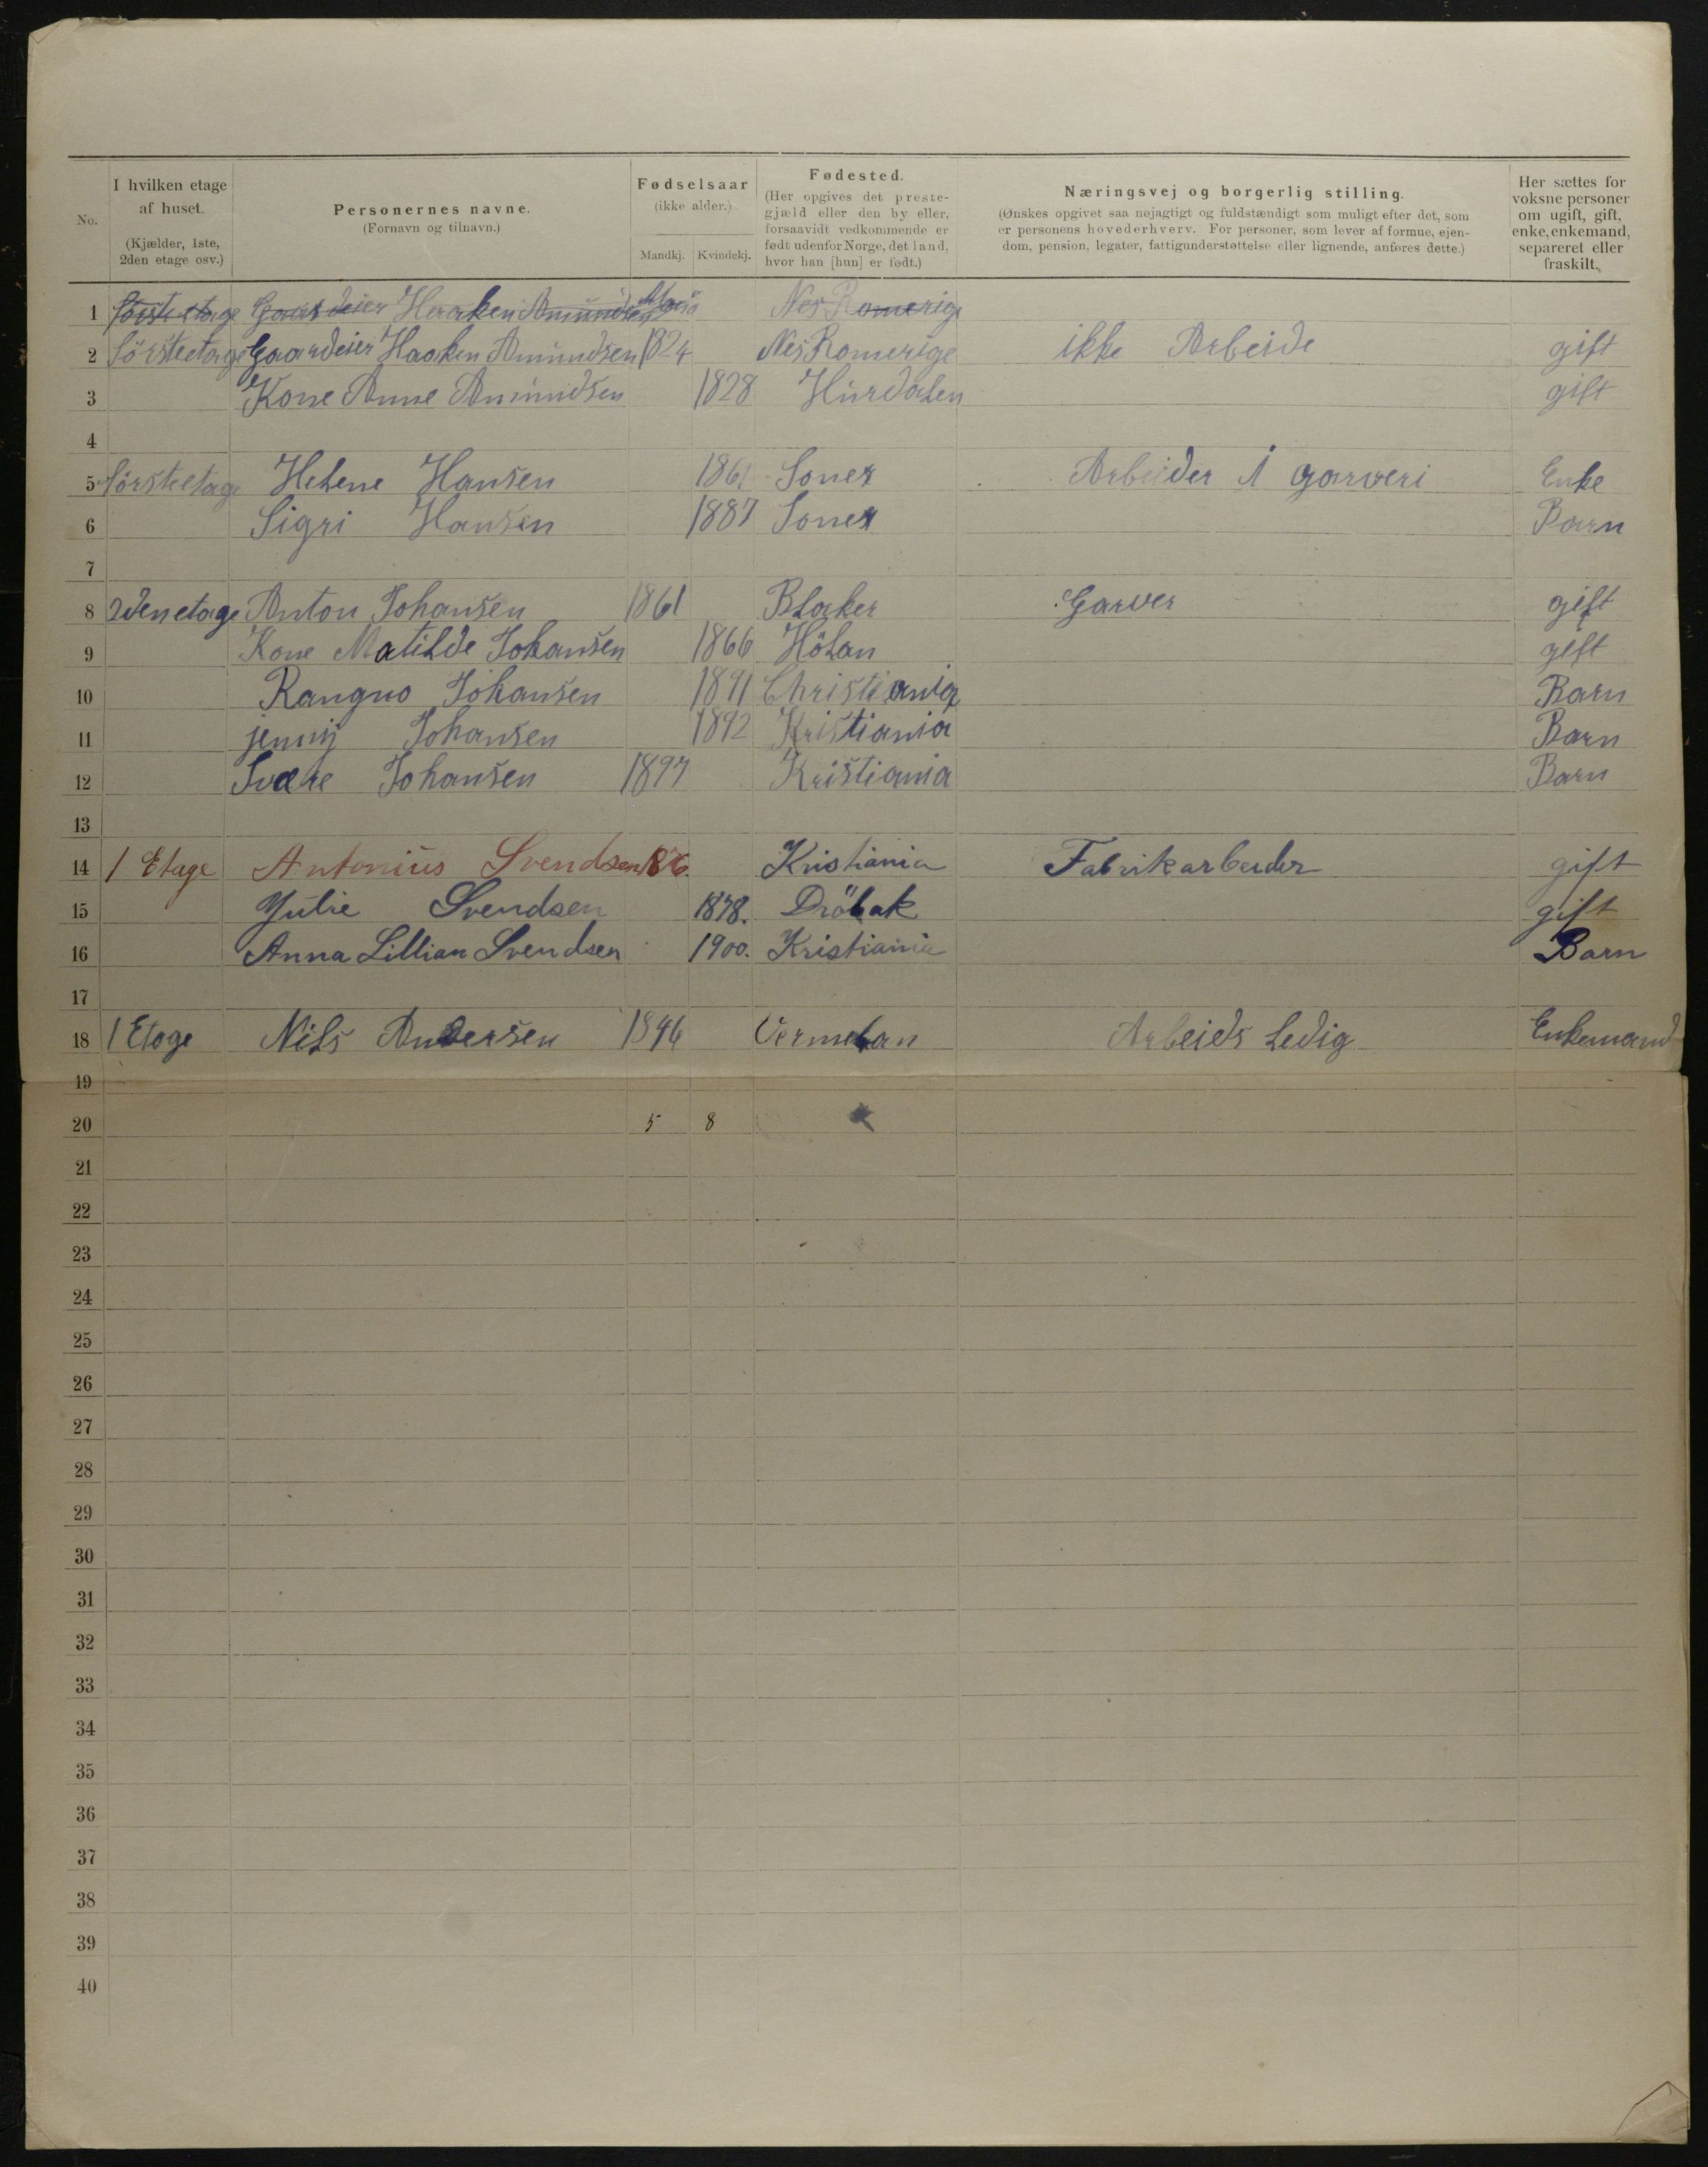 No.
I hvilken etage af huset.
(Kjælder, 1ste, 2den etage osv.)
Personernes navne.
(Fornavn og tilnavn.)
Fødselsaar
(ikke alder.)
Mandkj. Kvindekj.
Fødested.
(Her opgives det prestegjæld eller den by eller, forsaavidt vedkommende er født udenfor Norge, det land, hvor han [hun] er født.)
Næringsvej og borgerlig stilling.
(Ønskes opgivet saa nøjagtigt og fuldstændigt som muligt efter det, som er personens hovederhverv. For personer, som lever af formue, ejendom, pension, legater, fattigunderstøttelse eller lignende, anføres dette.)
Her sættes for voksne personer om ugift, gift, enke, enkemand, separeret eller fraskilt.
1 försteetage Gaardeier Haaken Amundsen Nes Romerige
2 försteetage Gaardeier Haaken Amundsen 1824 Nes Romerige ikke Arbeide gift
3 Kone Anne Amundsen 1828 Hurdalen gift
4
5 försteetage Helene Hansen 1861 Soner Arbeider I garveri Enke
6 Sigri Hansen 1887 Soner Barn
7
8 2denetage Anton Johansen 1861 Blaker Garver gift
9 Kone Matilde Johansen 1866 Hölan gift
10 Rangno Johansen 1891 Christiania Barn
11 jennij Johansen 1892 Kristiania Barn
12 Svære Johansen 1897 Kristiania Barn
13
14 1 Etage Antonius Svendsen 1876. Kristiania Fabrikarbeider gift
15 Julie Svendsen 1878. Dröbak gift
16 Anna Lillian Svendsen 1900. Kristiania Barn
17
18 1 Etage Nils Andersen 1846 Vermelan Arbeids Ledig Enkemand
19
20 5 8
21
22
23
24
25
26
27
28
29
30
31
32
33
34
35
36
37
38
39
40